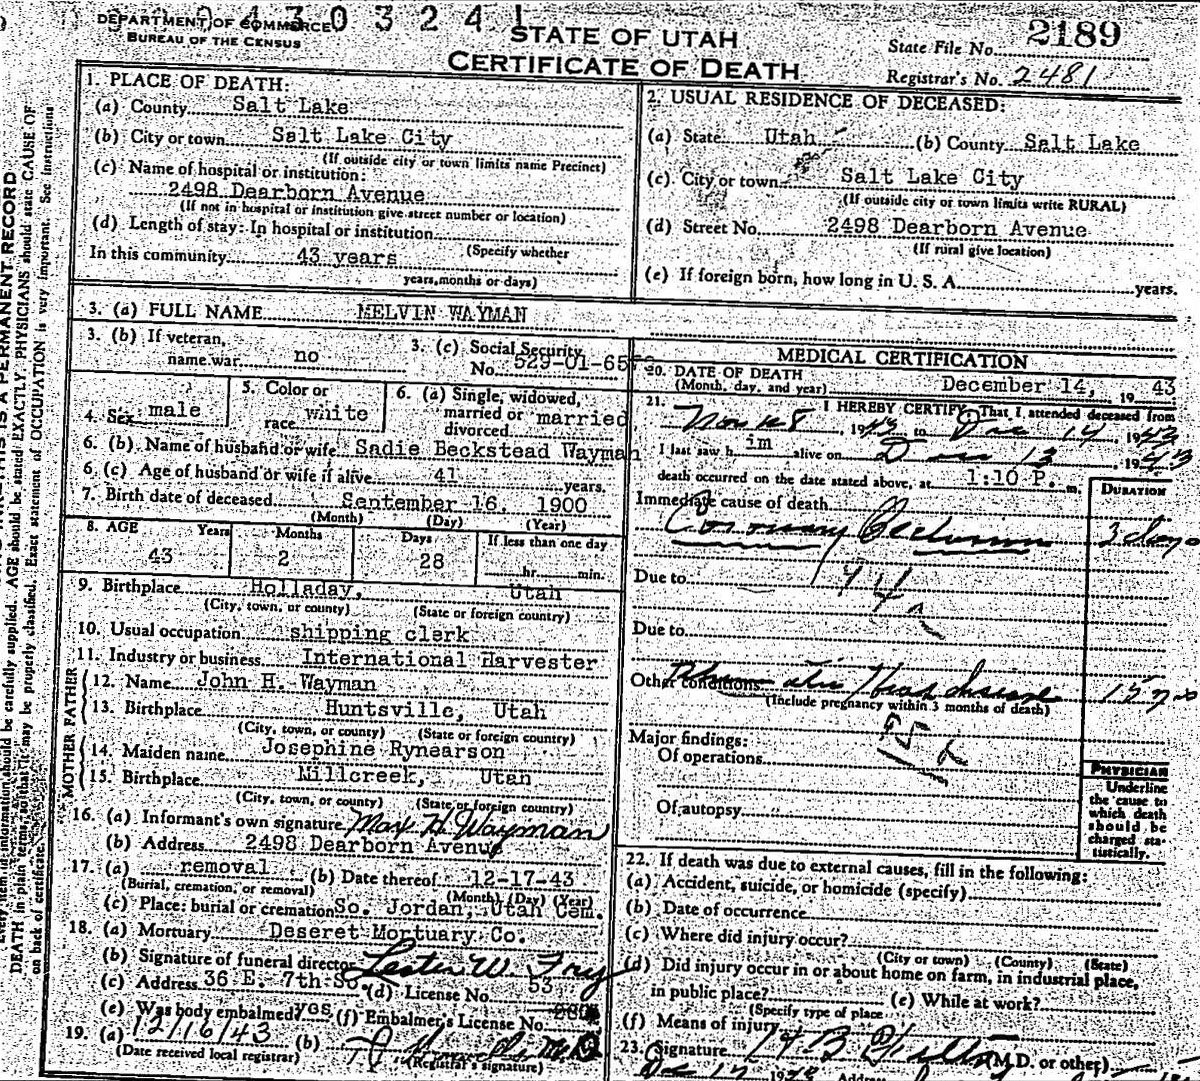 0 4 3 0 3 2 4 1
DEPARTMENT OF COMMERCE
BUREAU OF THE CENSUS
STATE OF UTAH
CERTIFICATE OF DEATH
State File No. 2189
Registrar's No. 2481
1. PLACE OF DEATH:
(a) County Salt Lake
(b) City or town Salt Lake City
(If outside city or town limits name Precinct)
(c) Name of hospital or institution:
2498 Dearborn Avenue
(If not in hospital or institution give street number or location)
(d) Length of stay: In hospital or institution
(Specify whether
In this community 43 years
years, months or days)
2. USUAL RESIDENCE OF DECEASED:
(a) State Utah (b) County Salt Lake
(c) City or town Salt Lake City
(If outside city or town limits write RURAL)
(d) Street No. 2498 Dearborn Avenue
(If rural give location)
(e) If foreign born, how long in U. S. A. years.
3. (a) FULL NAME MELVIN WAYMAN
3. (b) If veteran,
name war no
3. (c) Social Security
No. 529-01-65
4. Sex male
5. Color or
race white
6. (a) Single, widowed,
married or married
divorced
6. (b) Name of husband or wife Sadie Beckstead Wayman
6. (c) Age of husband or wife if alive 41 years.
7. Birth date of deceased September 16, 1900
(Month) (Day) (Year)
8. AGE Years Months Days If less than one day
43 2 28 hr. min.
9. Birthplace Holladay, Utah
(City, town, or county) (State or foreign country)
10. Usual occupation shipping clerk
11. Industry or business International Harvester
FATHER
12. Name John H. Wayman
13. Birthplace Huntsville, Utah
(City, town, or county) (State or foreign country)
MOTHER
14. Maiden name Josephine Rynearson
15. Birthplace Millcreek, Utah
(City, town, or county) (State or foreign country)
16. (a) Informant's own signature Max H. Wayman
(b) Address 2498 Dearborn Avenue
17. (a) removal (b) Date thereof 12-17-43
(Burial, cremation, or removal) (Month) (Day) (Year)
(c) Place: burial or cremation So. Jordan, Utah Cem.
18. (a) Mortuary Deseret Mortuary Co.
(b) Signature of funeral director Lester W. Fry
(c) Address 36 E. 7th So. (d) License No. 53
(e) Was body embalmed? yes (f) Embalmer's License No.
19. (a) 12/16/43 (b)
(Date received local registrar) (Registrar's signature)
MEDICAL CERTIFICATION
20. DATE OF DEATH
(Month, day, and year) December 14, 1943
21. I HEREBY CERTIFY, That I attended deceased from
Nov 8, 1943 to Dec 14 1943
I last saw him alive on Dec 13, 1943
death occurred on the date stated above, at 1:10 P. m.
DURATION
Immediate cause of death
Coronary Occlusion 3 days
Due to 94a
Due to
Other conditions Rheumatic Heart disease 15 yrs
(Include pregnancy within 3 months of death)
Major findings:
Of operations
Of autopsy
PHYSICIAN
Underline
the cause to
which death
should be
charged sta-
tistically.
22. If death was due to external causes, fill in the following:
(a) Accident, suicide, or homicide (specify)
(b) Date of occurrence
(c) Where did injury occur?
(City or town) (County) (State)
(d) Did injury occur in or about home on farm, in industrial place,
in public place? (e) While at work?
(Specify type of place
(f) Means of injury
23. Signature (M.D. or other)
Dec 17 19 Address
should be carefully supplied. AGE should be stated EXACTLY. PHYSICIANS should state CAUSE OF
DEATH in plain terms, so that it may be properly classified. Exact statement of OCCUPATION is very important. See instructions
on back of certificate.
THIS IS A PERMANENT RECORD